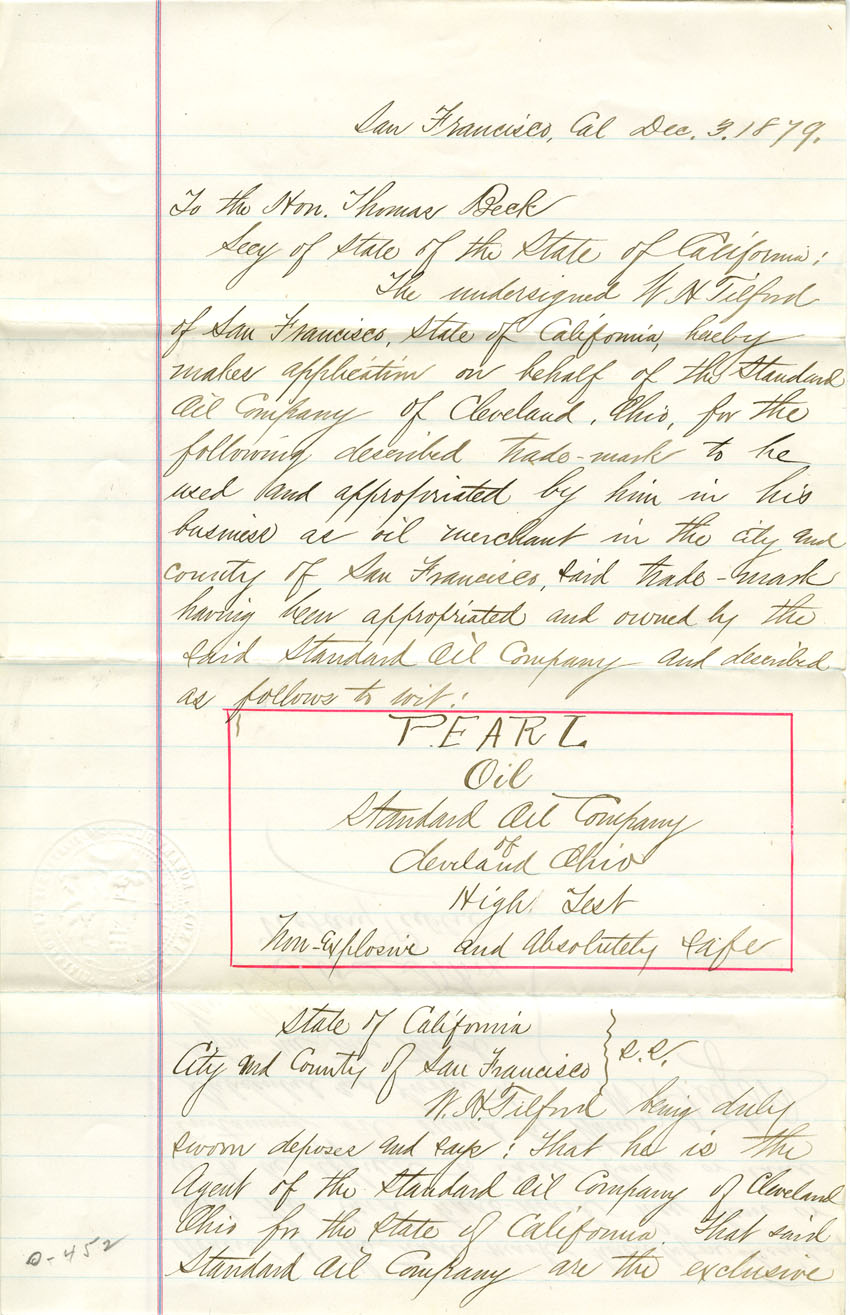 San Francisco, Cal Dec. 3. 1879.
To the Hon. Thomas Beck
Secy of State of the State of California:
The undersigned W. H. Tilford
of San Francisco, State of California, hereby
makes application on behalf of the Standard
Oil Company of Cleveland, Ohio, for the
following described trade-mark to be
used and appropriated by him in his
business as oil merchant in the city and
county of San Francisco, said trade-mark
having been appropriated and owned by the
said Standard Oil Company and described
as follows to wit:
PEARL
Oil
Standard Oil Company
of
Cleveland Ohio
High Test
Non-Explosive and Absolutely Safe
State of California
City and County of San Francisco } S.S.
W. H. Tilford being duly
sworn deposes and says: That he is the
Agent of the Standard Oil Company of Cleveland
Ohio for the State of California. That said
Standard Oil Company are the exclusive
D-452